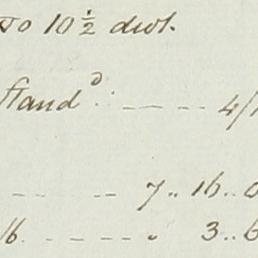 To 10 ½ dwt.
Stand^d: ---- 4/
-- -- 7.. 16.. 0
16. ----- . 3.. 6